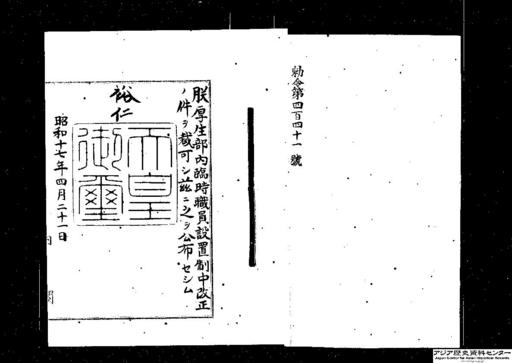 勅令第四百四十一號
朕厚生部內臨時職員設置制中改正
ノ件ヲ裁可シ茲ニ之ヲ公布セシム
裕仁
天皇御璽
昭和十七年四月二十一日
アジア歴史資料センター
Japan Center for Asian Historical Records